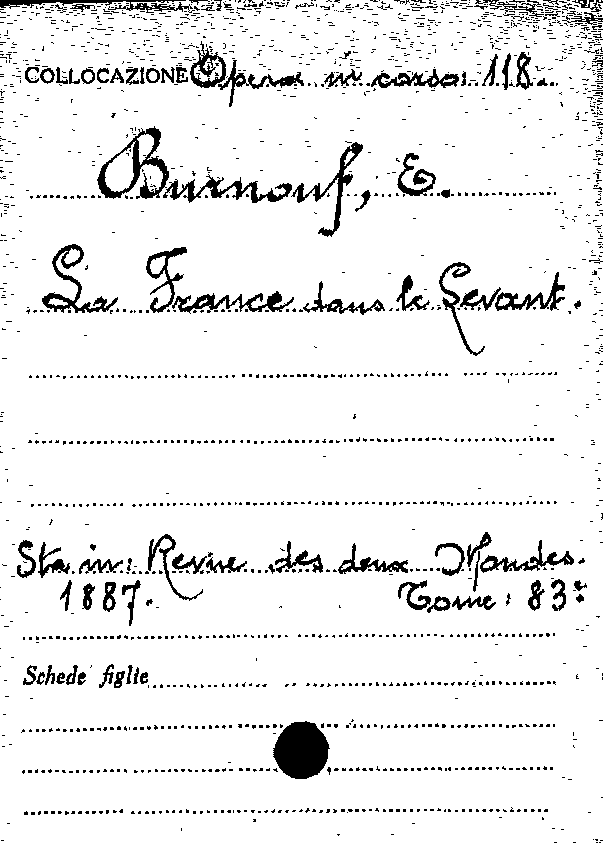 COLLOCAZIONE Opera in corso: 118.
Burnouf, E.
La France dans le Levant.
Sta in: Revue des deux Mondes.
1887. Tome: 83º
Schede figlie